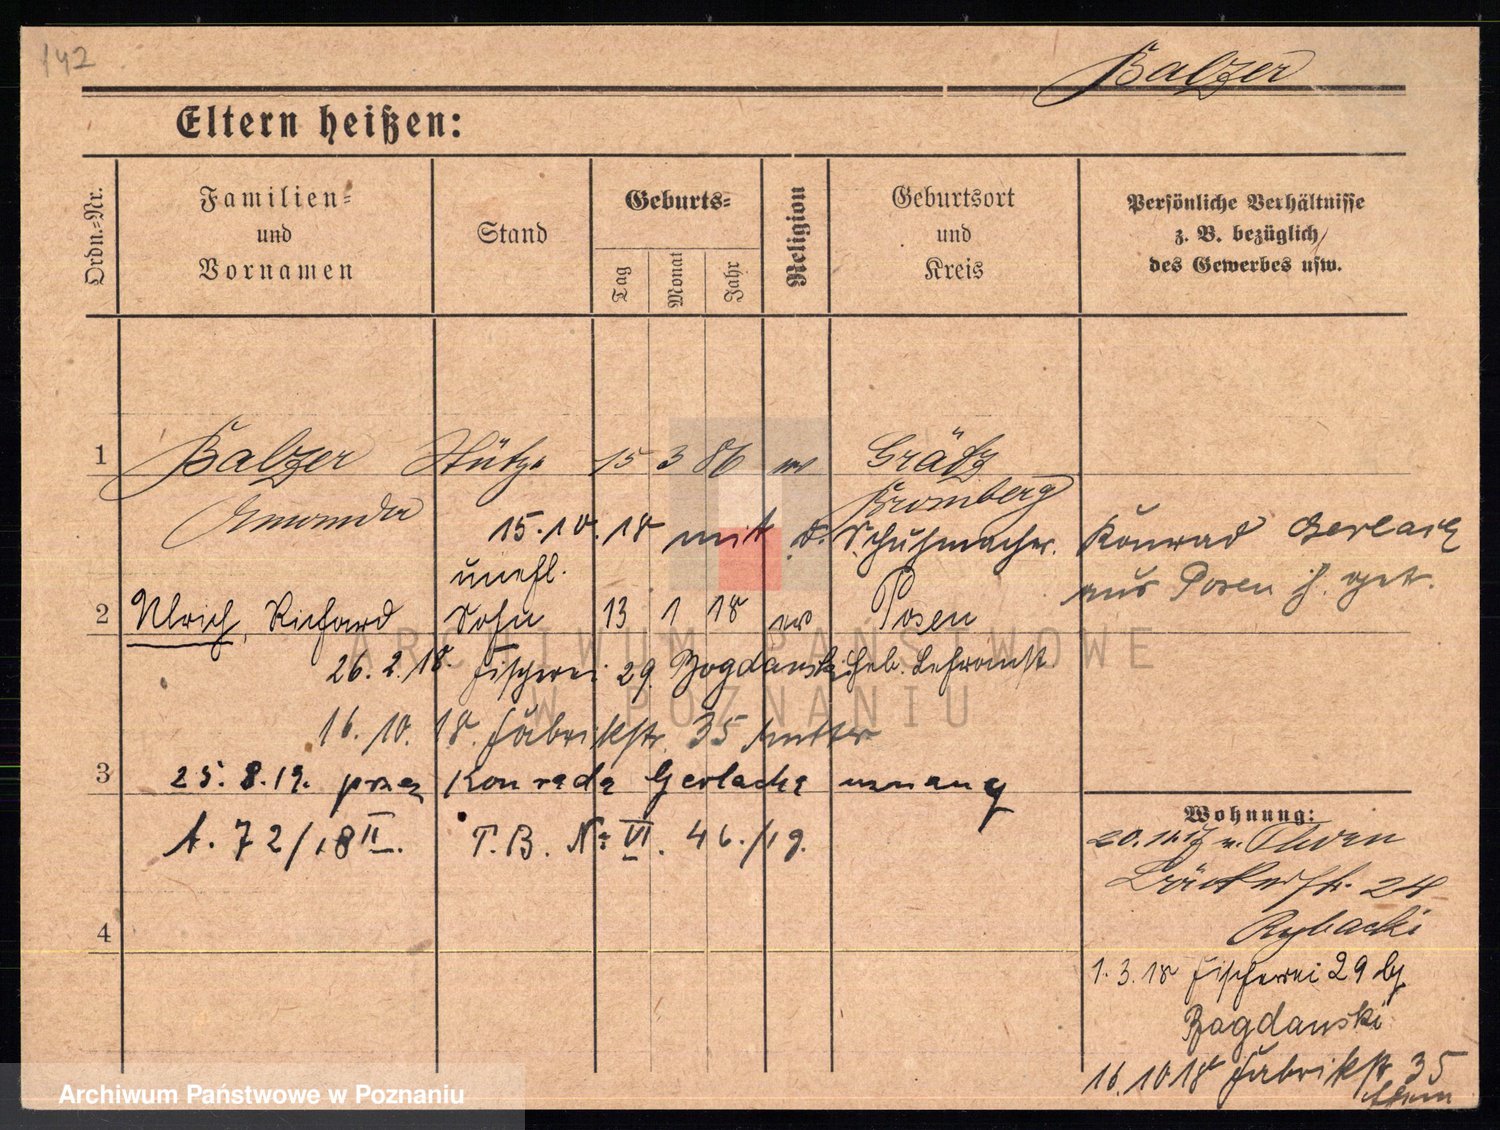 142
Balzer
Eltern heißen:
Ordn.-Nr.
Familien-
und
Vornamen
Stand
Geburts-
Tag
Monat
Jahr
Religion
Geburtsort
und
Kreis
Persönliche Verhältnisse
z. B. bezüglich
des Gewerbes usw.
1 Balzer Stütze 15 3 86 ev Grätz
Bromberg
15.10.18 mit d. Schuhmacher. Konrad Gerlach
unehl. aus Posen
2 Ulrich, Richard Sohn 13 1 18 ev Posen
26.2.18. Fischerei 29 Bogdanski
16.10.18. Fabrikstr. 35 Mutter
3 25.8.19. przez Konrada Gerlacha uznany
A. 72/18 II. T.B. Nr VI. 46./19.
Wohnung:
20.
24
4 Rybacki
1.3.18 Fischerei 29 by
Bogdanski
16.10 18 Fabrikstr. 35
ARCHIWUM PAŃSTWOWE
W POZNANIU
Archiwum Państwowe w Poznaniu